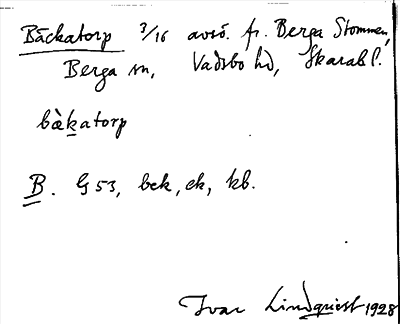 Bäckatorp 3/16 avsö. fr. Berga Stommen,
Berga sn, Vadsbo hd, Skarab l.
bàkatorp
B. G 53, bek, ek, kb.
Ivar Lindquist 1928